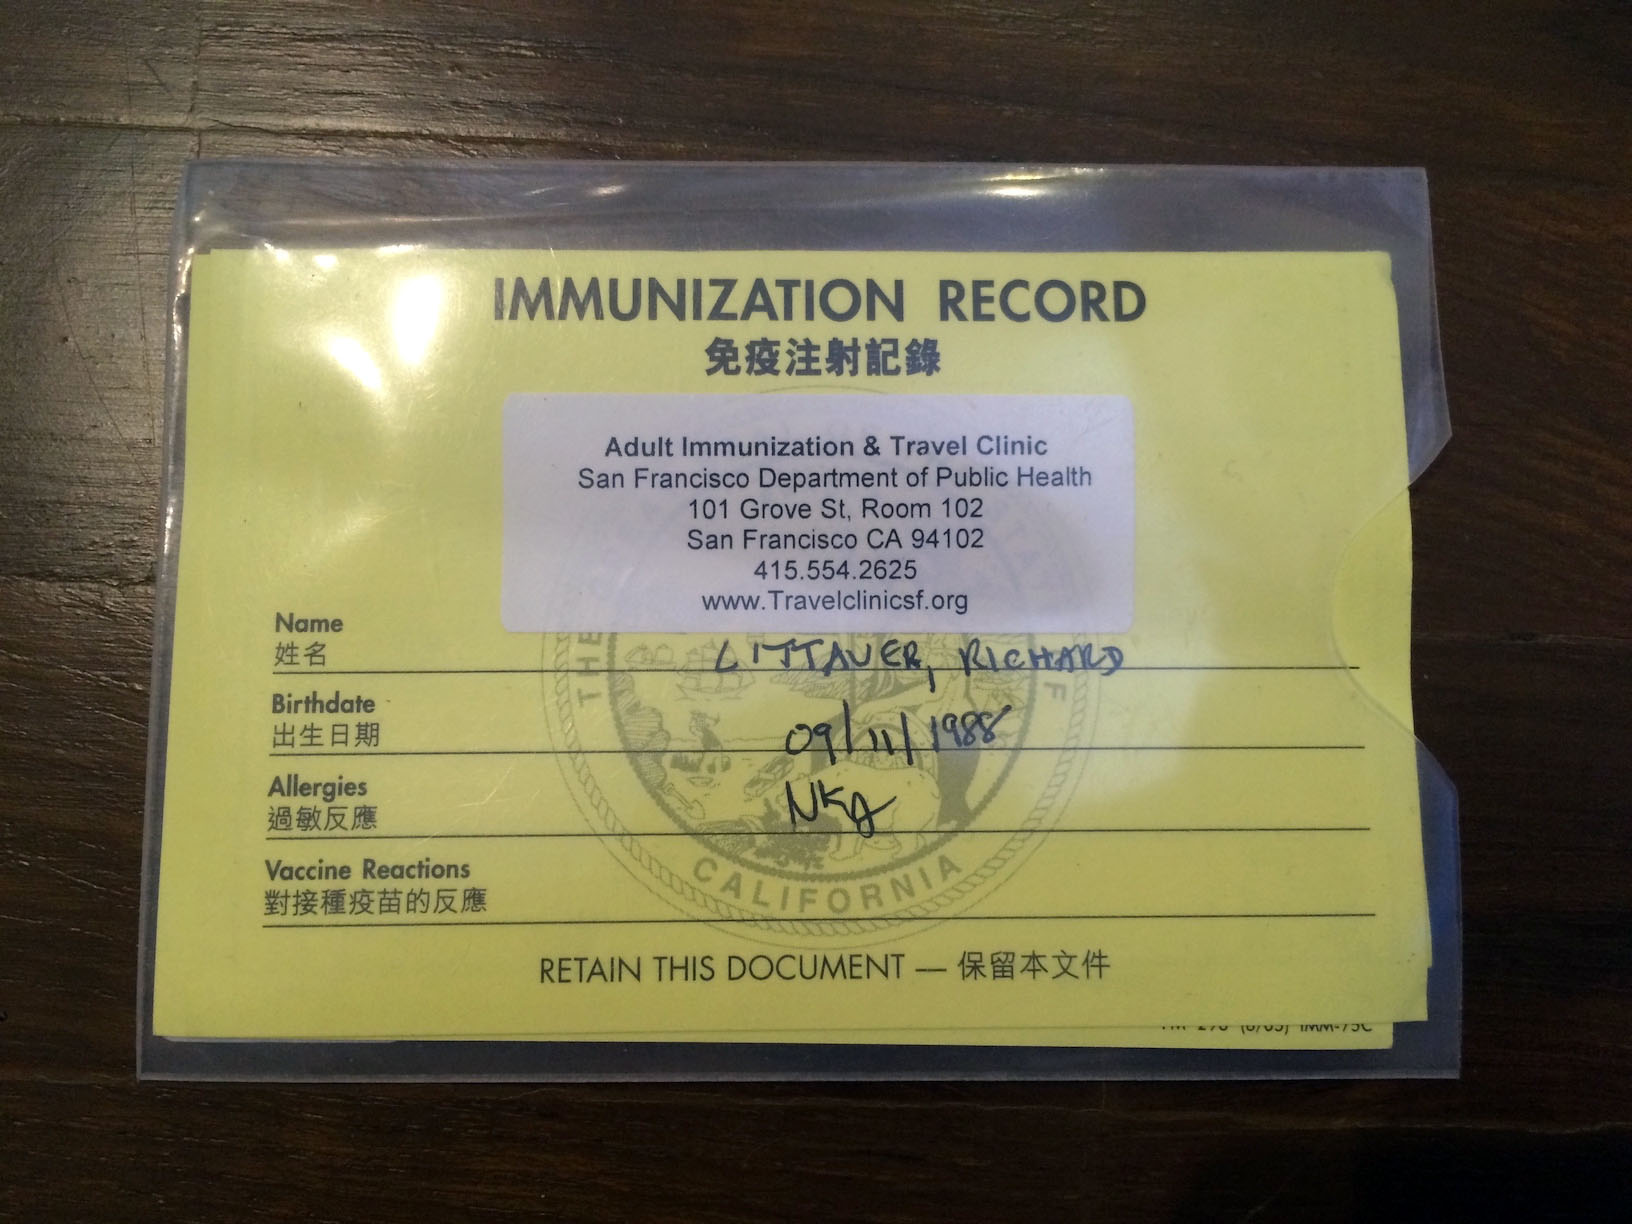 IMMUNIZATION RECORD
免疫注射記錄
Adult Immunization & Travel Clinic
San Francisco Department of Public Health
101 Grove St, Room 102
San Francisco CA 94102
415.554.2625
www.Travelclinicsf.org
Name
姓名
LITTAUER, RICHARD
Birthdate
出生日期
09/11/1988
Allergies
過敏反應
NKA
Vaccine Reactions
對接種疫苗的反應
CALIFORNIA
RETAIN THIS DOCUMENT — 保留本文件
IMM-75C